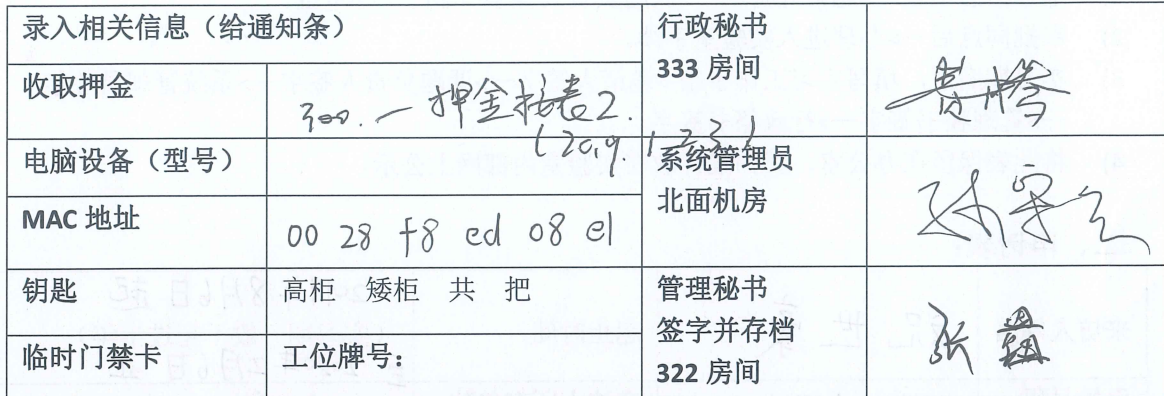 录入相关信息（给通知条）
行政秘书
333 房间
收取押金
300. 一押金接表2.
(2019.1.23)
电脑设备（型号）
系统管理员
北面机房
MAC 地址
00 28 f8 ed 08 e1
钥匙
高柜 矮柜 共 把
管理秘书
签字并存档
322 房间
临时门禁卡
工位牌号：
张